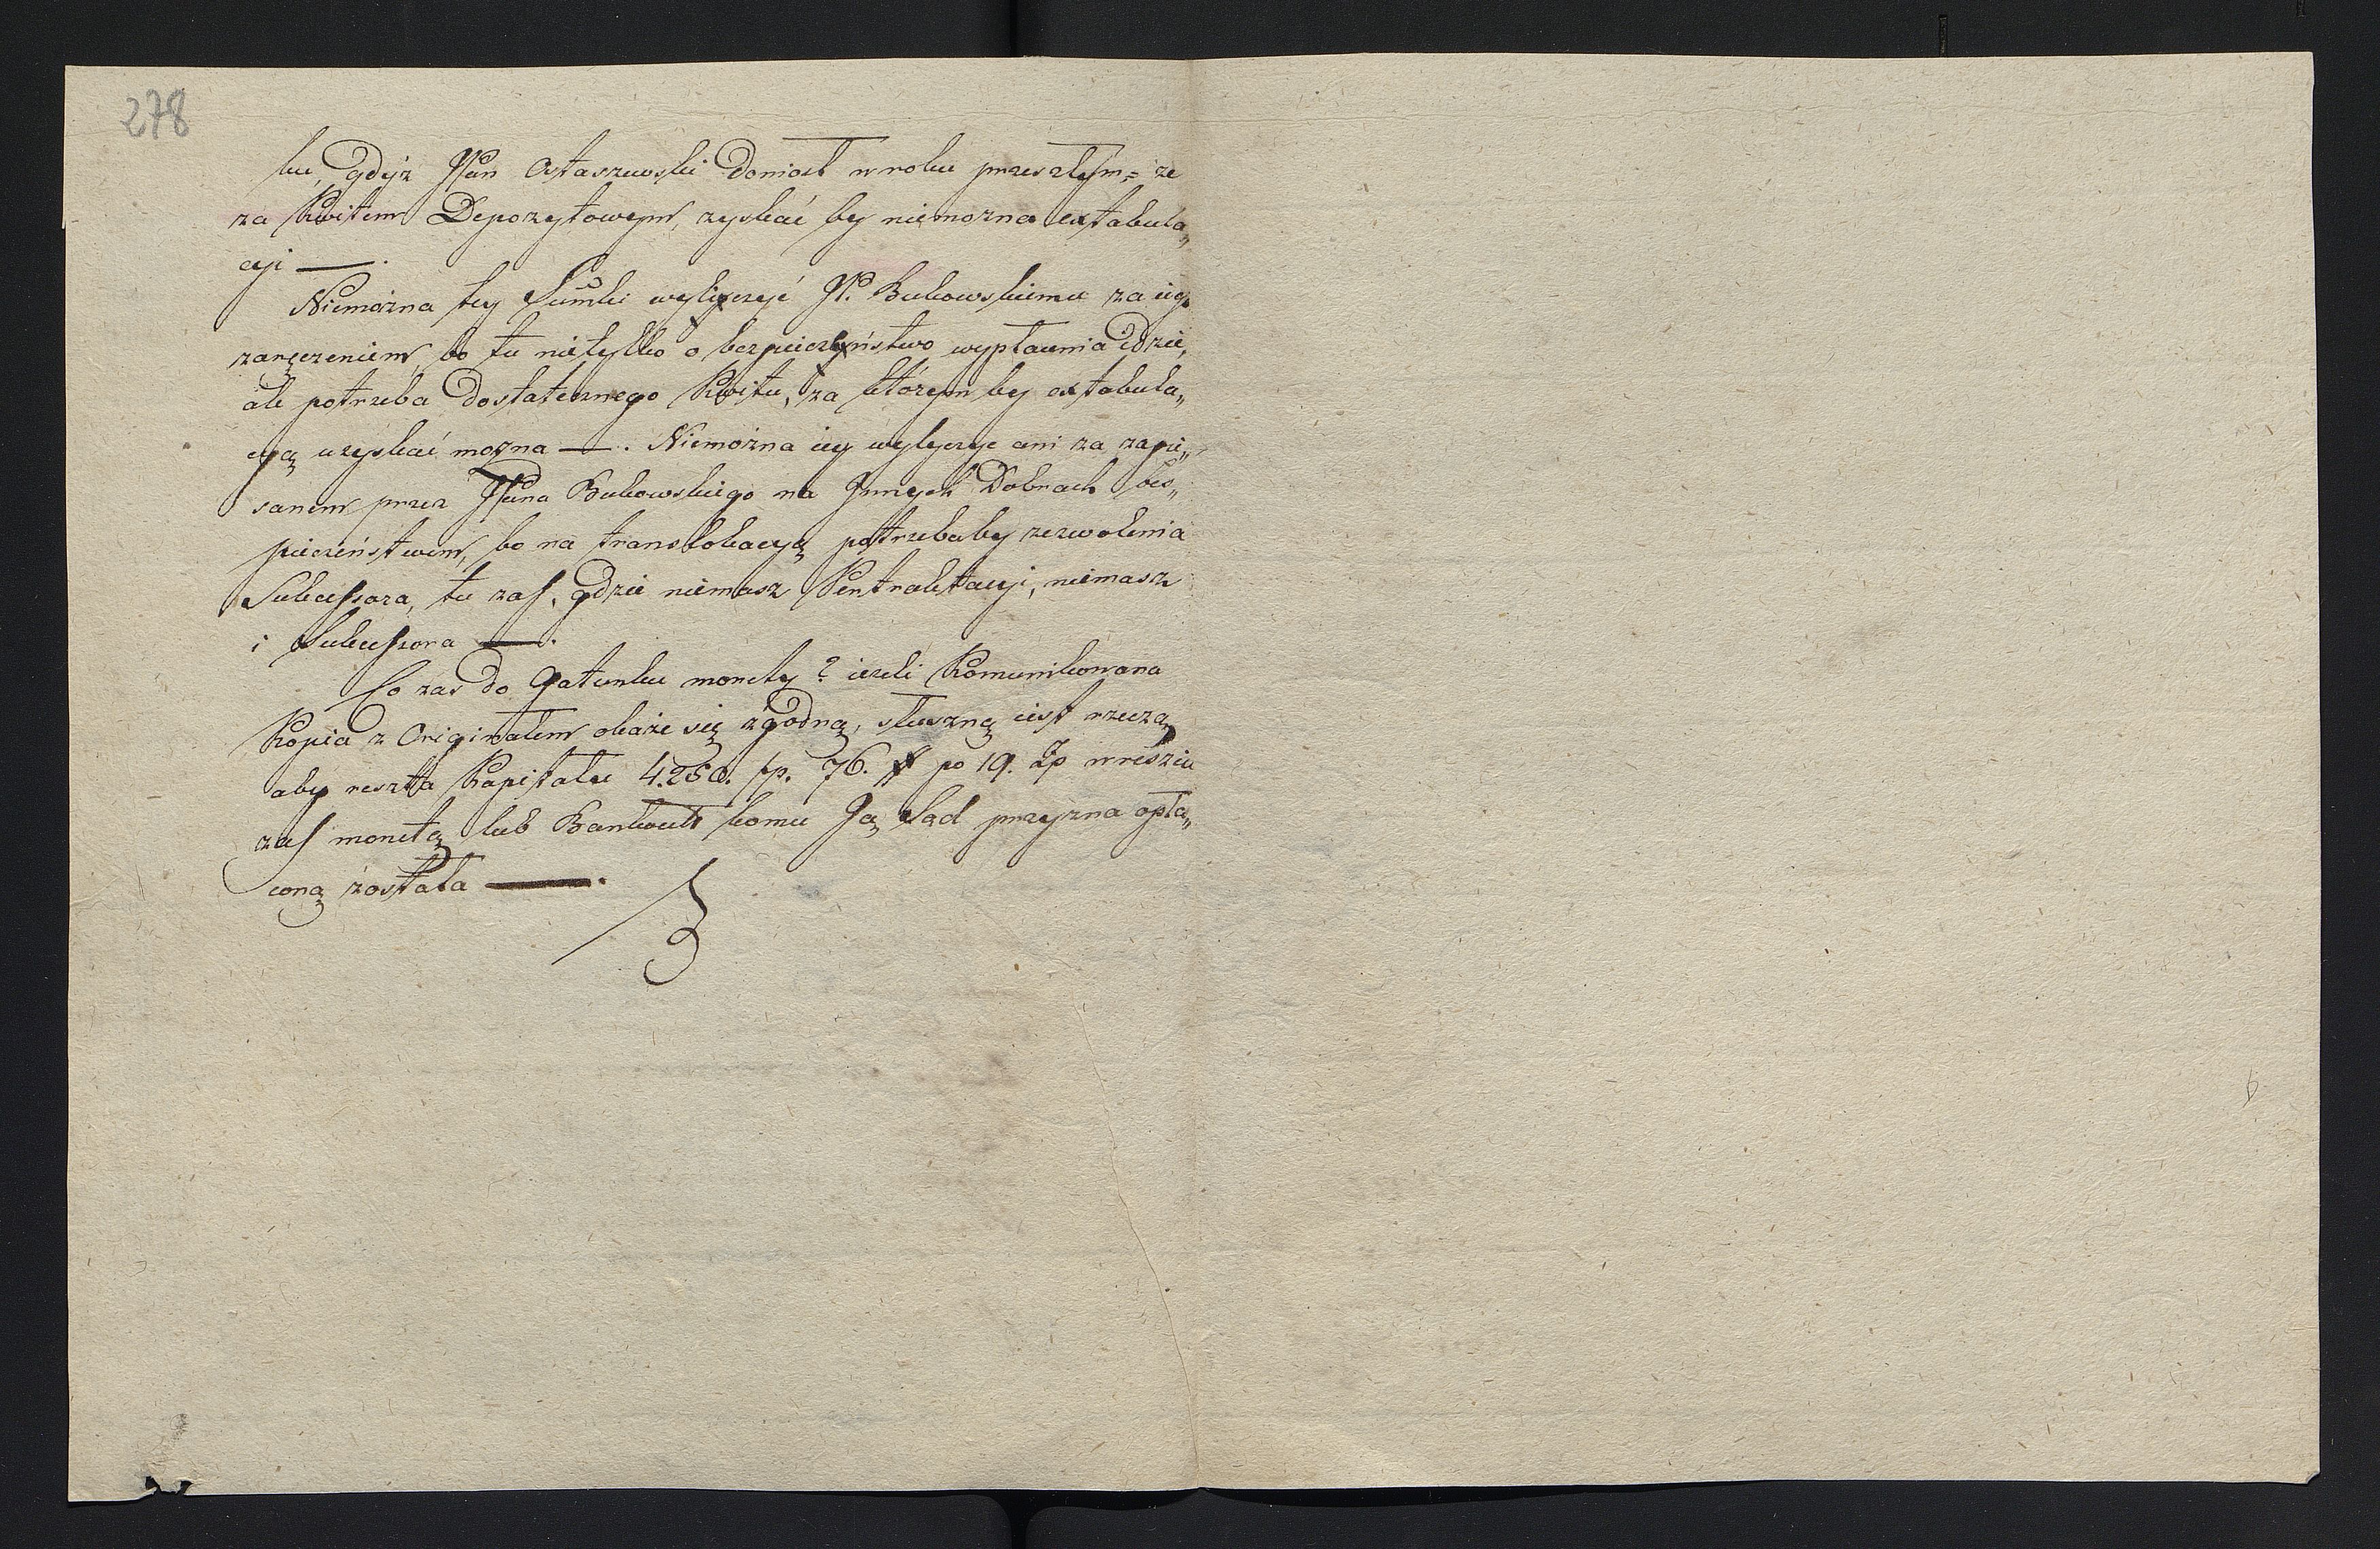 278
ku, gdyż JPan Ostaszewski doniosł w roku przeszłym, że
za Kwitem Depozytowym, zyskać by nie można extabula„
cyi —.
Niemożna tey Sum̃ki wyliczyć JP. Bukowskiemu za iego
zaręczeniem, bo tu nietylko o bezpieczeństwo wypłacenia idzie,
ale potrzeba dostatecznego Kwitu, za którym by extabula„
cyą uzyskać można —. Niemożna iey wyliczyc ani za zapi„
sanem przez JPana Bukowskiego na Innych Dobrach bes„
pieczeństwem, bo na translokacyą potrzebaby zezwolenia
Sukcessora, tu zaś, gdzie niemasz Pertraktacyi, niemasz
i Sukcessora —.
Co zas do Gatunku monety? ieżeli Komunikowana
Kopia z Originałem okaże się zgodną, słuszną iest rzeczą
aby reszta Kapitału 4.250. fp. 76. # po 19. Zp w reszcie
zaś monetą lub Bankocet komu Ją Sąd przyzna opła„
coną została —.